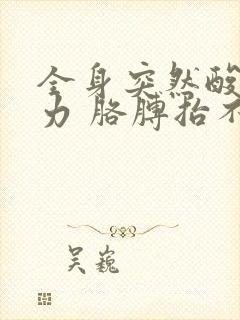 全身突然酸
力 胳膊抬不
吴巍